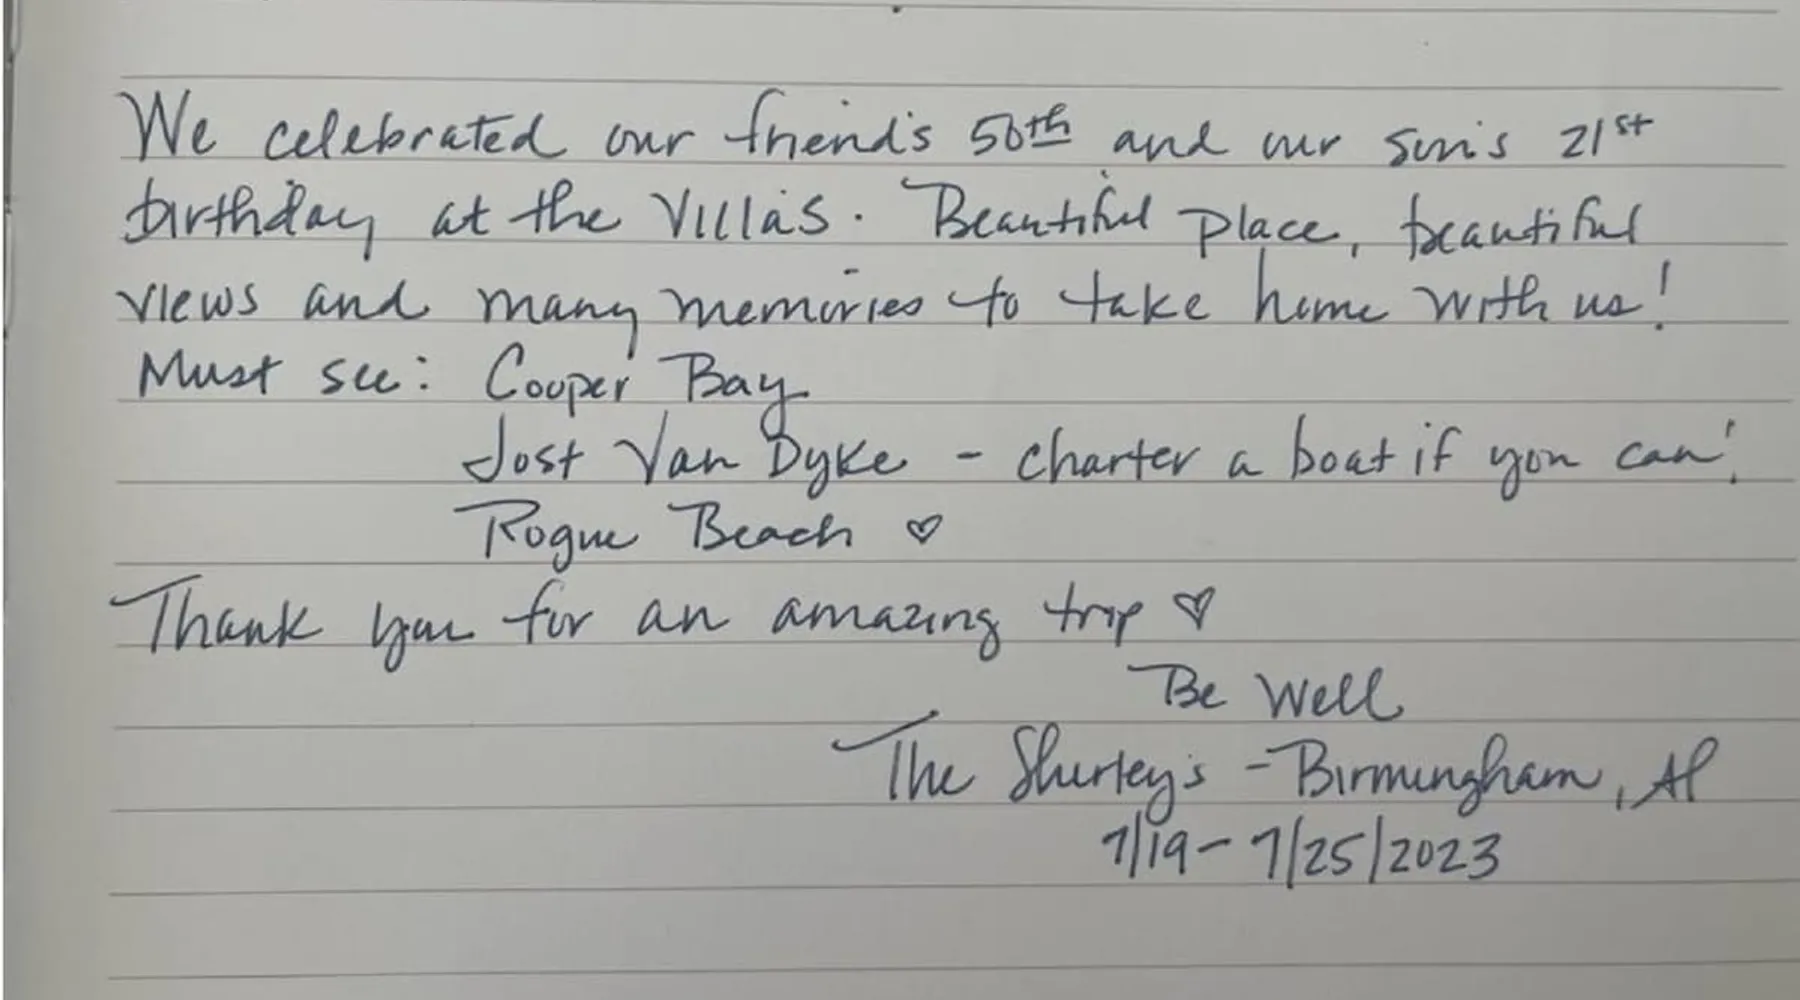 We celebrated our friend's 50th and our son's 21st
birthday at the Villas. Beautiful place, beautiful
views and many memories to take home with us!
Must see: Cooper Bay
Jost Van Dyke - charter a boat if you can!
Rogue Beach ♡
Thank you for an amazing trip ♡
Be Well
The Shurley's - Birmingham, Al
7/19 - 7/25/2023